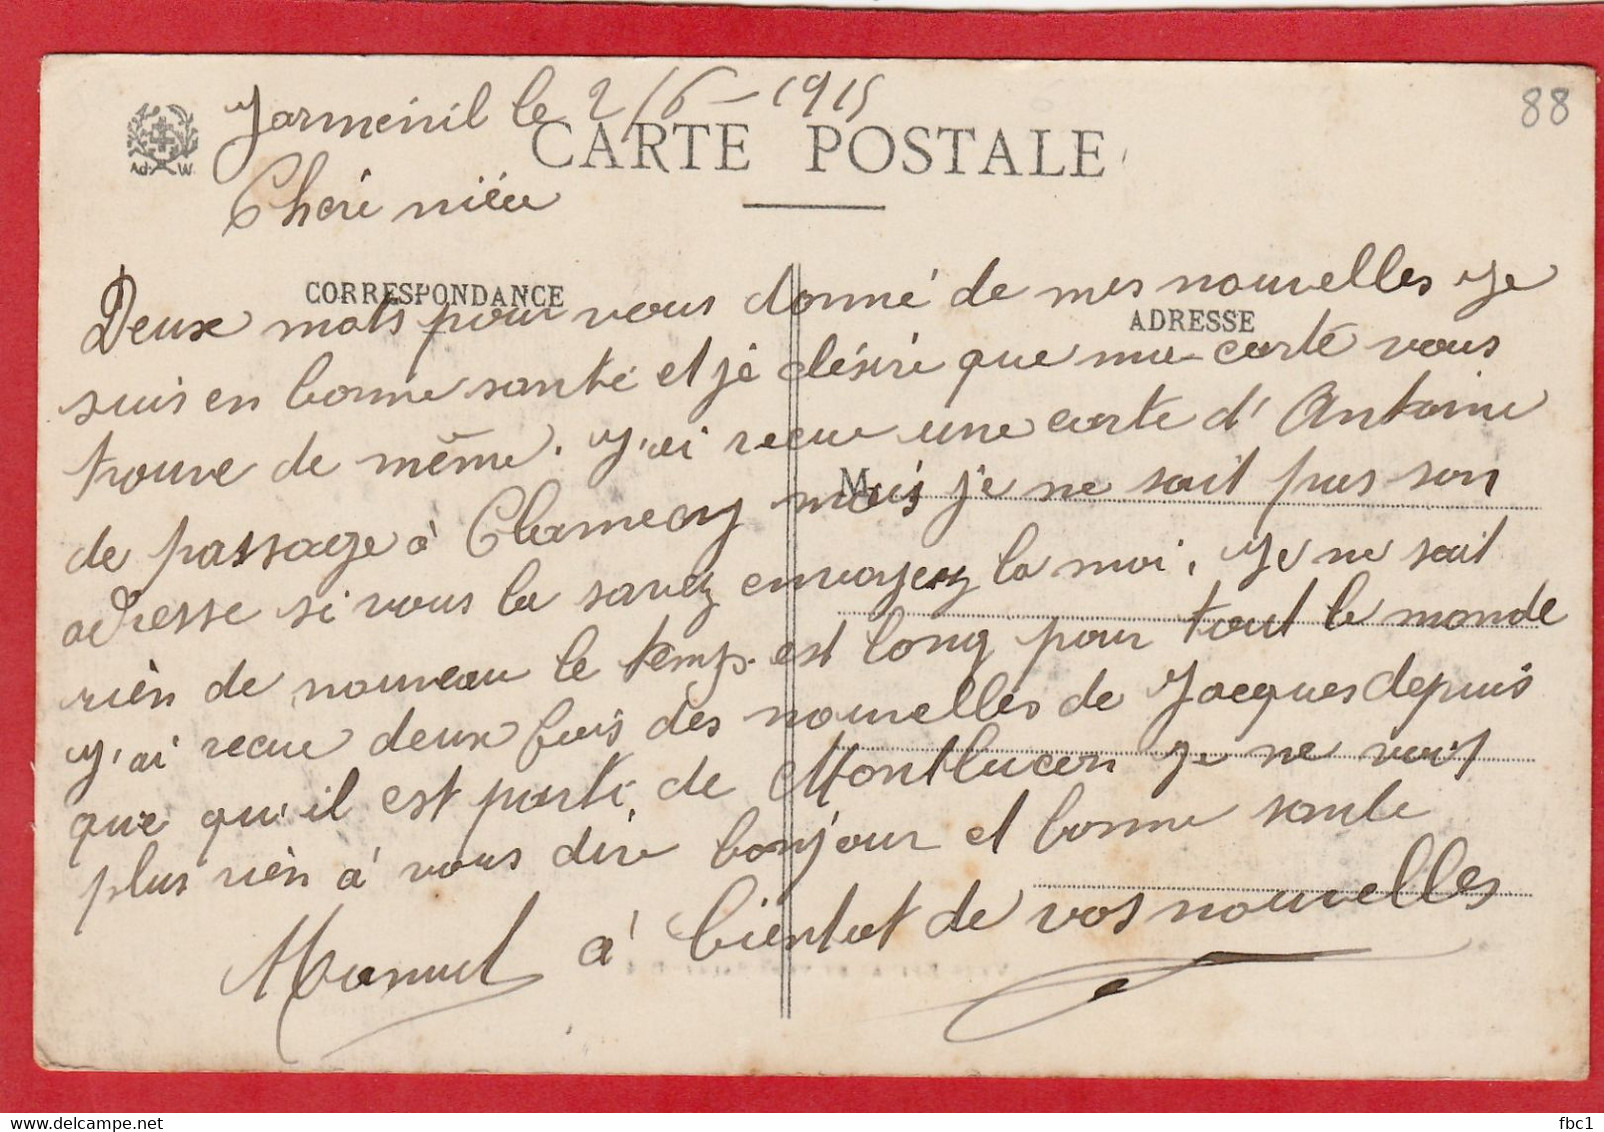 Jarménil le 2/6-1915
88
CARTE POSTALE
Ad W
Chere nièce
CORRESPONDANCE
ADRESSE
Deux mots pour vous donné de mes nouvelles je
suis en bonne santé et je désire que ma carte vous
trouve de même. J'ai recue une carte d'Antoine
M
de passage à Clamecy mais je ne sait pas son
adresse si vous la savez envoyez la moi. Je ne sait
rièn de nouveau le temps est long pour tout le monde
J'ai recue deux fois des nouvelles de Jacques depuis
que qu'il est parti de Montlucon je ne voit
plus rièn à vous dire bonjour et bonne sante
Manuel à bientot de vos nouvelles
www.delcampe.net
fbc1